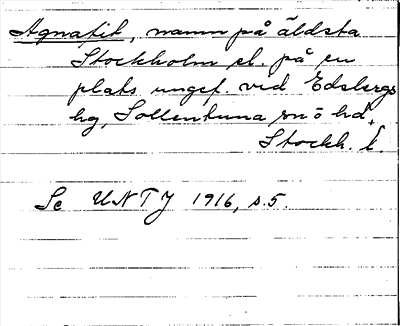 Agnafit, namn på äldsta
Stockholm el. på en
plats ungef. ved Edsbergs
hg, Sollentuna sn o hd,
Stockh. l.
Se UNTJ 1916, s. 5.